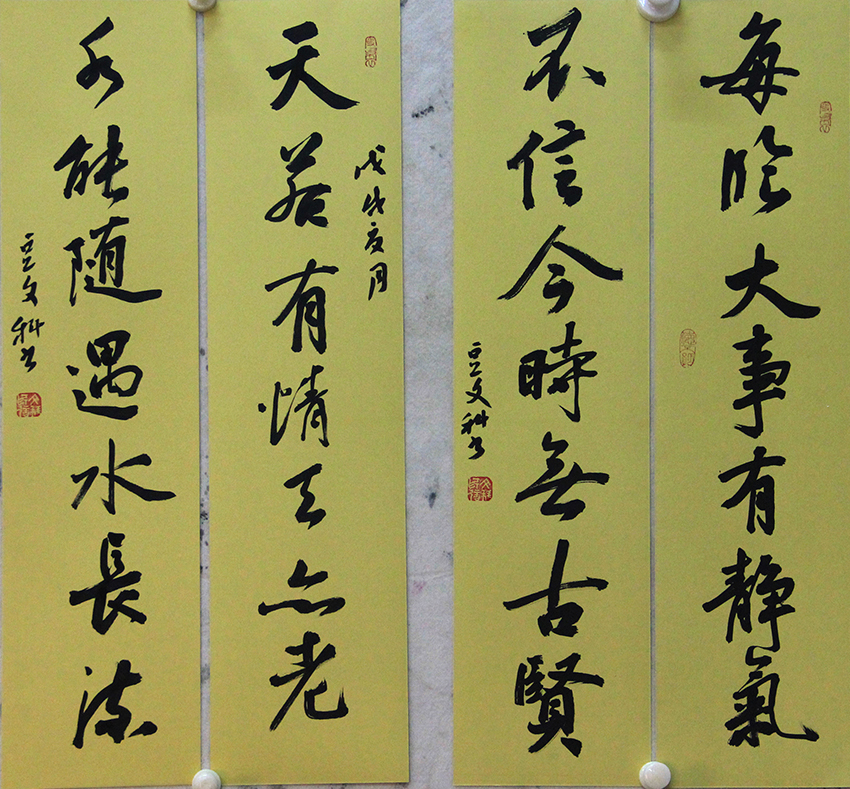 每臨大事有静氣
不信今時無古賢
豆文科书
戊戌夏月
天若有情天亦老
能随遇水長流
豆文科书